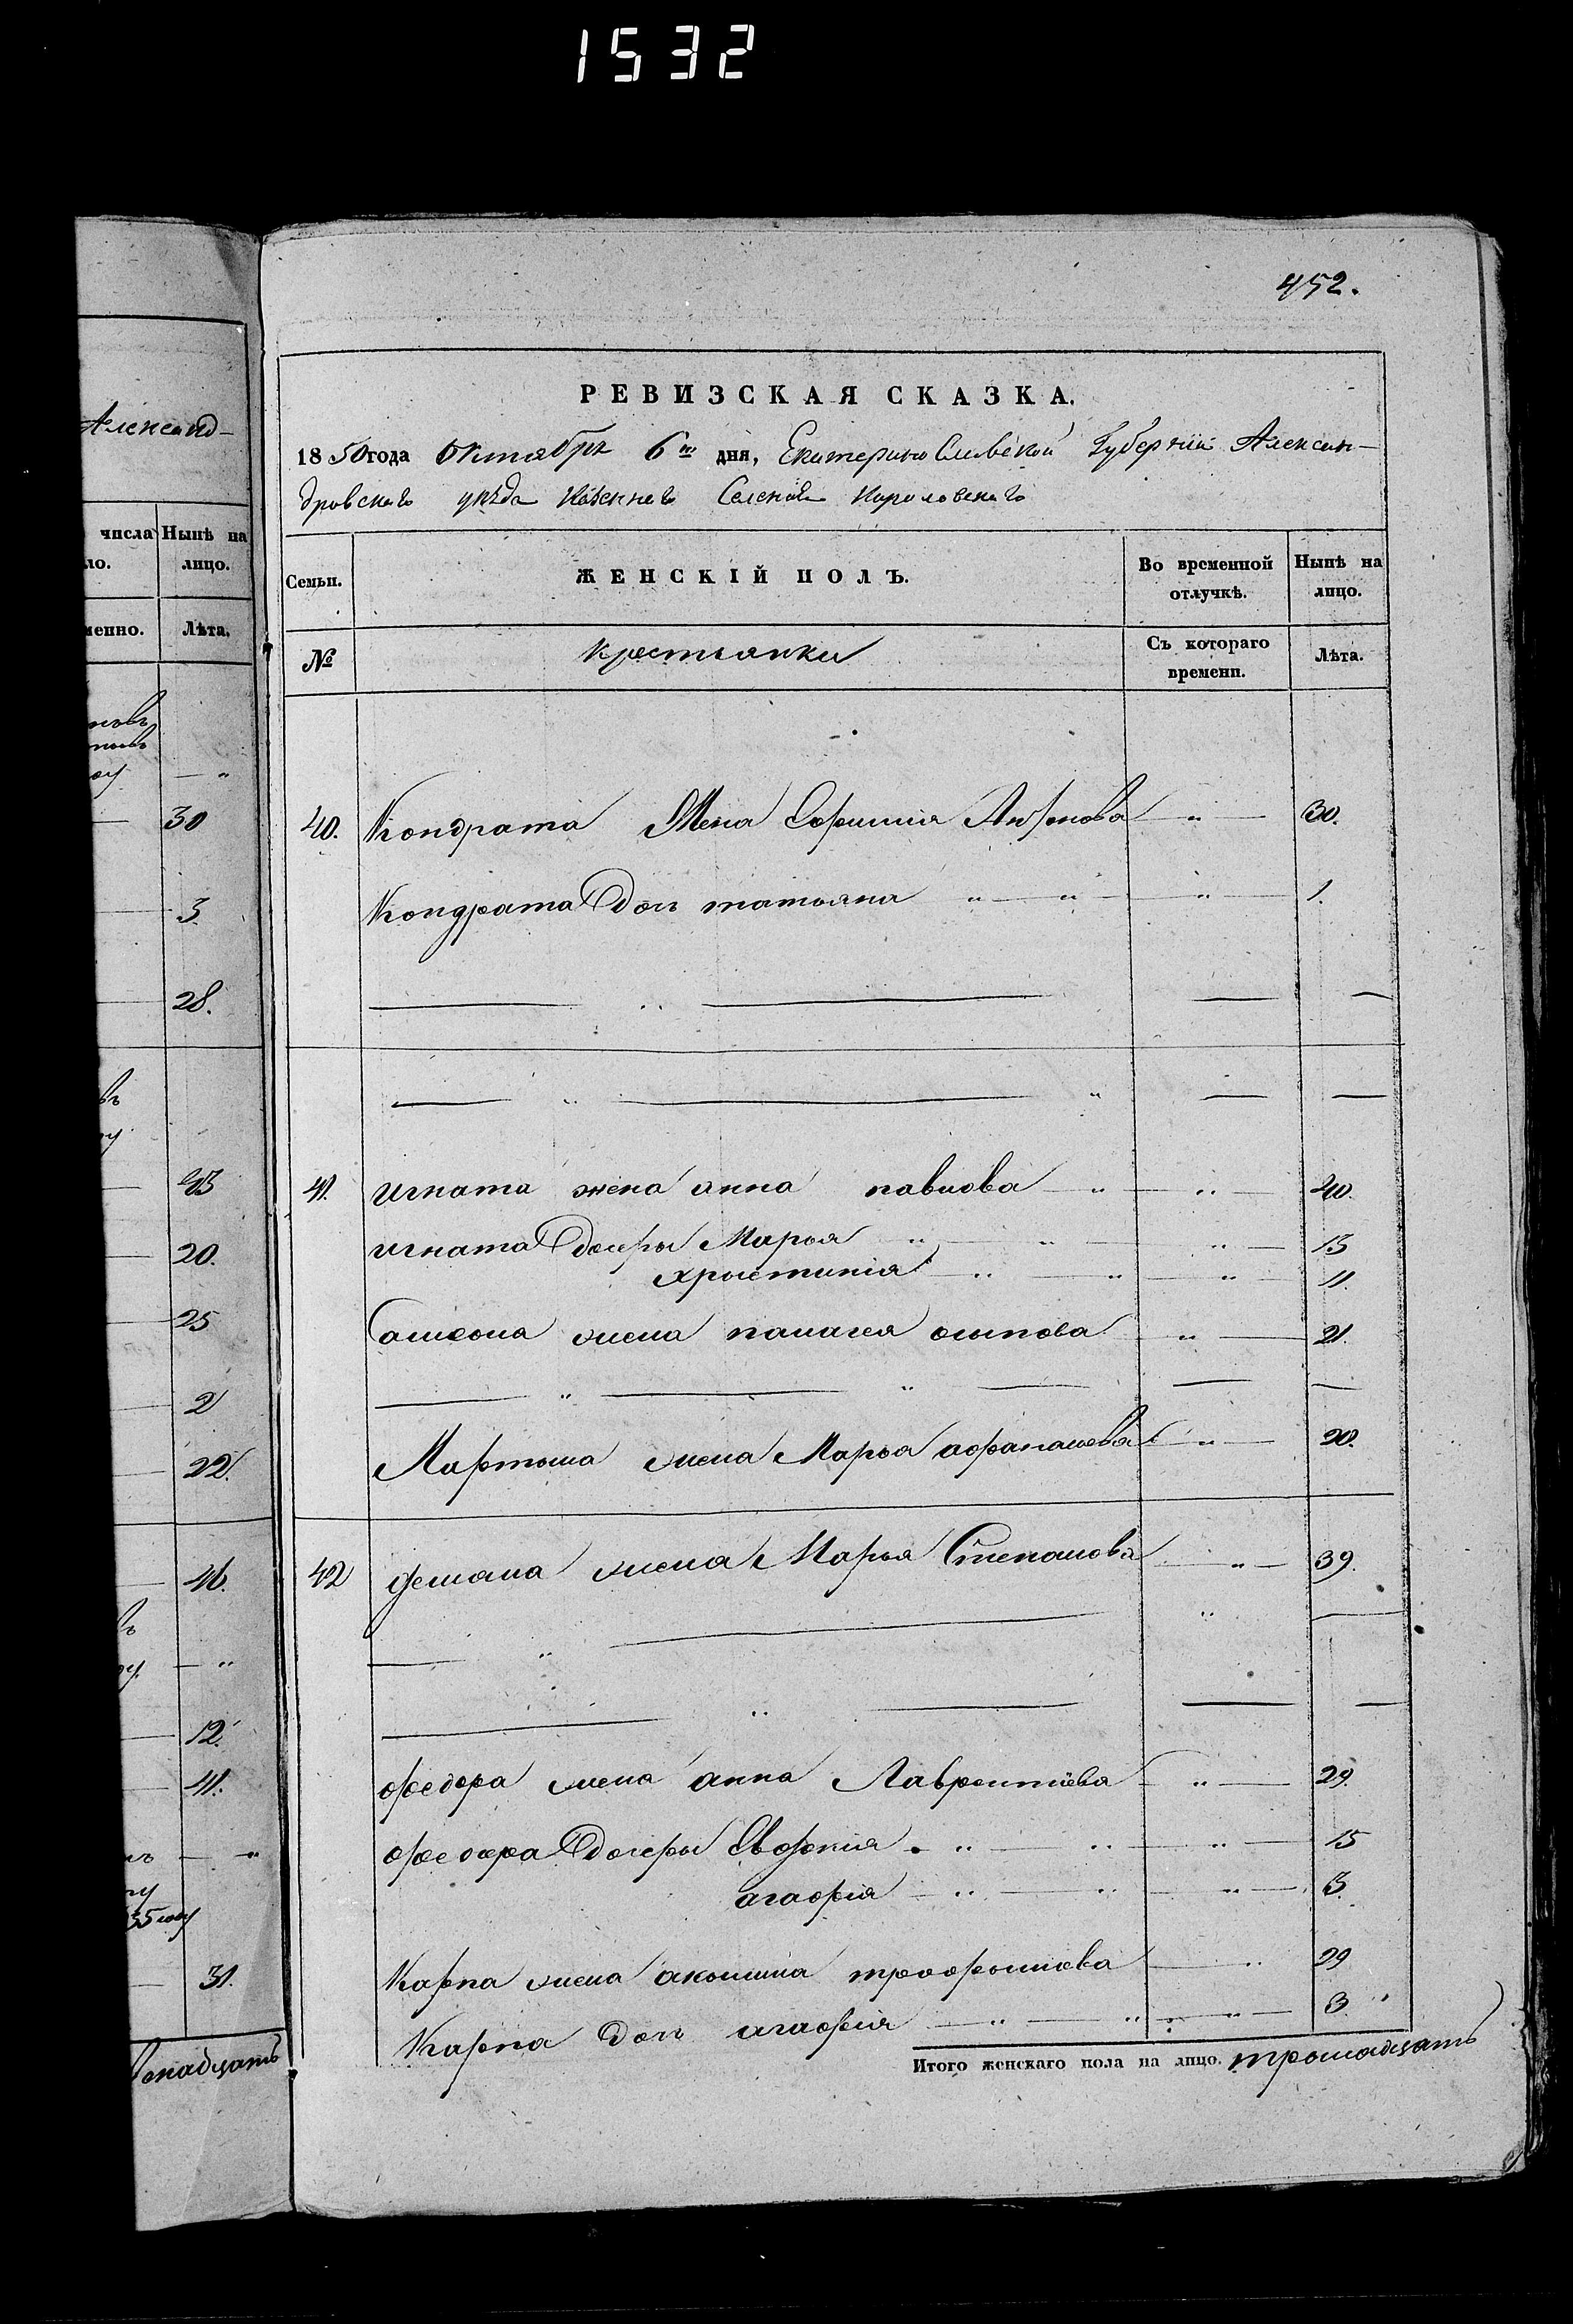 1532
452.
Александ-
РЕВИЗСКАЯ СКАЗКА.
1850 года Октября 6го дня, Екатеринославской Губернии Алексан-
дровскаго уѣзда Казеннаго Селения Кароловскаго
числа Нынѣ на
ло. лицо.
менно. Лѣта.
Семьи. ЖЕНСКІЙ ПОЛЪ. Во временной отлучкѣ. Нынѣ на лицо.
№ крестьянки Съ котораго времени. Лѣта.
40. Кондрата Жена Ефимия — " — 30.
Кондрата доч татьяна " — " — " — 1.
— " — — —
— " — " — —
41. игната жена анна павлова — " — " — 40.
игната дочеры Марья " — " — " — 13
христиния — " — " — " — 11.
Самсона жена палагея осипова " — 21.
— " — " — — —
Мартына жена Марья афанасьева — " — 20.
42 демяна жена Марья Степанова " — 39.
— " — " —
— " — — —
федора жена анна Лаврентиева — " — 29.
федора дочеры Евфимия " — " — " — 15
агафия — " — " — " — 3.
Карпа жена акулина трофимова — " 29
Карпа доч агафия — " — " — " — 3.
Итого женскаго пола на лицо. тринадцать
30
3
28.
43
20.
25
2
22.
46.
12.
11.
35 году
31.